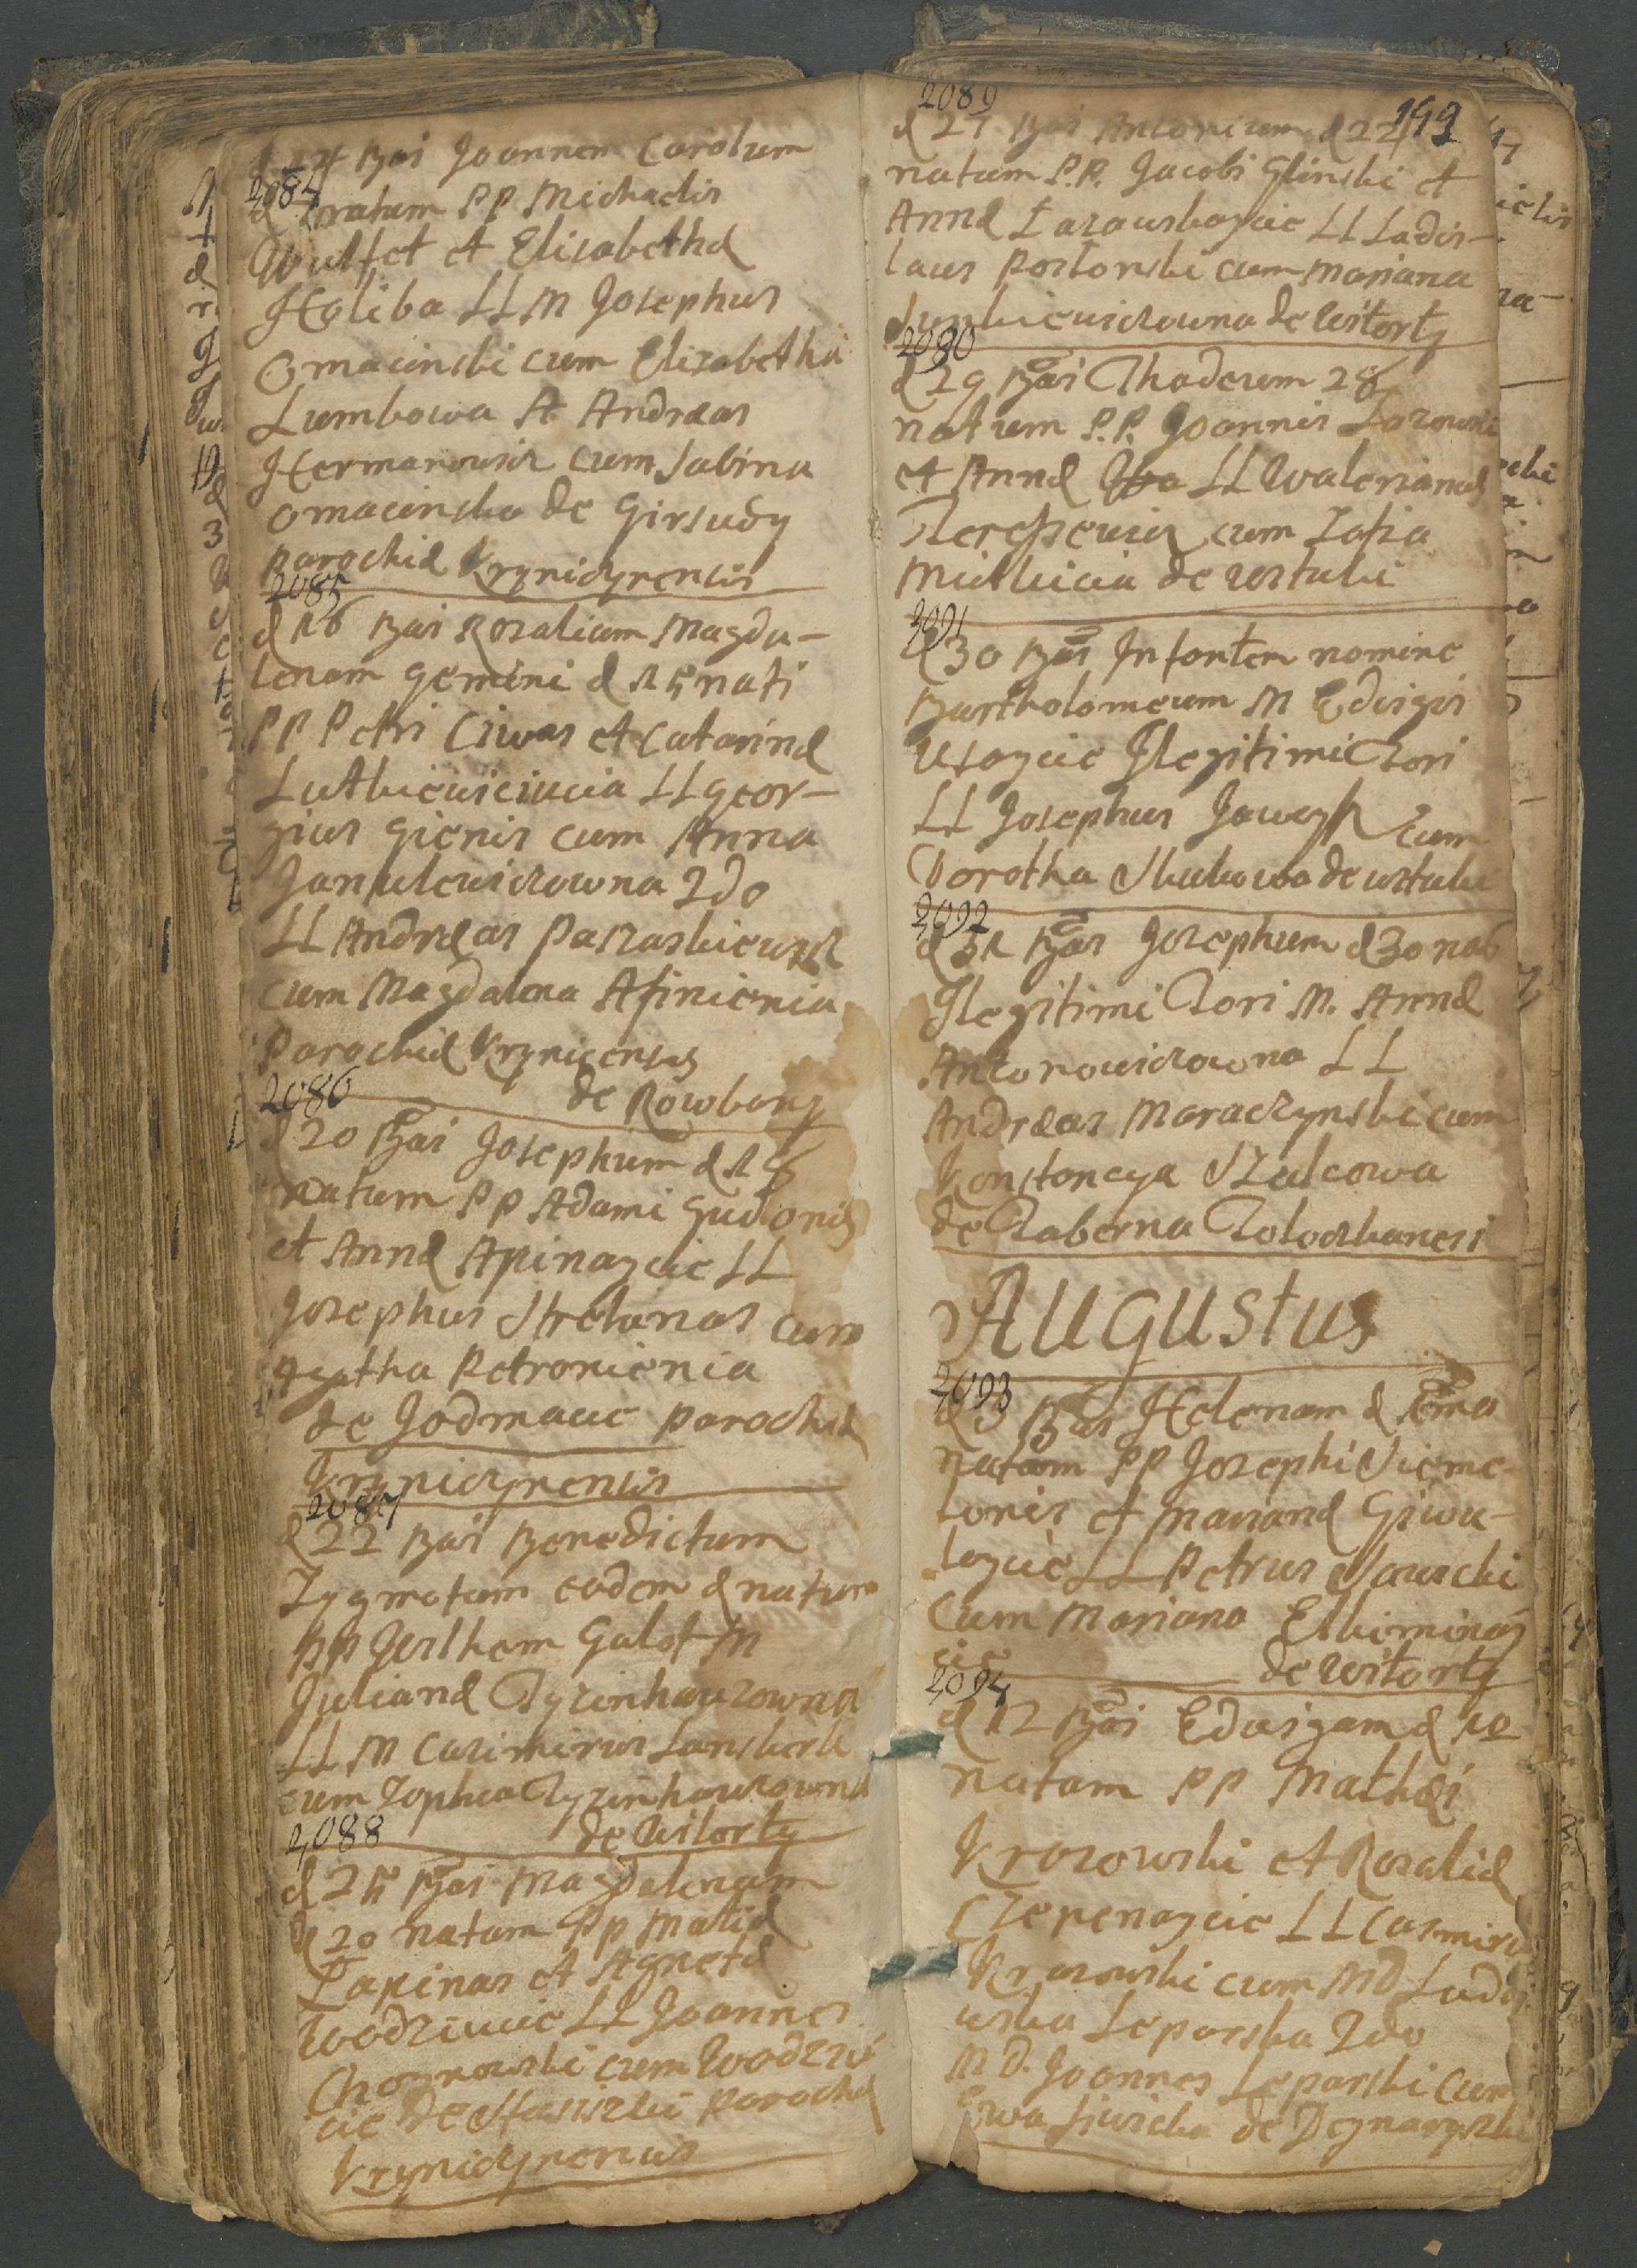 d 14 Bai Joannem Carolum
2084
d natum PP Michaelis
Wulfet et Elisabethæ
Holiba LL M Josephus
Omacinski cum Elisabetha
Lumbowa A Andreas
Hermanowicz cum Sabina
Omacinska de Girsudy
parochiæ Krynicynensis
2085
d 16 Bai Rozaliam Magda-
lenam gemini d 15 nati
PP Petri Ciwas et Catarinæ
Lutkiewiciucia LL Geor-
gius Gienis cum Anna
Janulewiczowna 2do
LL Andreas Paszaskiewicz
cum Magdalena Afinienia
Parochiæ Krynicensis
2086 de Rowbany
d 20 Bai Josephum d 18
natum PP Adami Gudonis
et Annæ Apinaycie LL
Josephus Strelunas cum
Agatha Petronienia
de Jodmacie parochiæ
Krynicynensis
2087
d 22 Bai Benedictum
Zygmotum eodem d natum
PP Wilhem Galot M
Julianæ Tyzenhauzowna
LL M Casimirus Lanskork
cum Zophia Tyzenhauzowna
2088 de Witorty
d 25 Bai Magdalenam
d 20 natam PP Matiæ
Łapinas et Agnetæ
Woodziucie LL Joannes
Choynowski cum Woodziu
cie de Stasiszki Parochiæ
Krynicynensis
2089 199
d 27 Bai Antonium d 22
natum P.P. Jacobi Glinski et
Annæ Łazauskaycie LL Ladis-
laus Postonski cum Mariana
Junkiewiczowna de Witorty
2090
d 29 Bai Thadeum 28
natum P.P. Joannis Lozowski
et Annæ LL Walerianus
Tereszewicz cum Zofia
Mutkicia de Wstuki
2091
d 30 Bai Infantem nomine
Bartholomeum M Edvigis
Usaycie Ilegitimi Tori
LL Josephus Jawaysz cum
Dorotha Skukowa de Wstuki
2092
d 31 Bai Josephum d 30 nat
Ilegitimi Tori M. Annæ
Antonowiczowna LL
Andreas Moraczynski cum
Konstoncya Szulcowa
de Taberna Toloczkaneri
Augustus
2093
d 3 Bai Helenam d 1ma
natam PP Josephi Sieme-
lonis et Marianæ Giwu-
laycie LL Petrus Nawicki
Cum Mariana Elkiminay
cie de Witorty
2094
d 12 Bai Edwigam d 10
natam PP Mathæi
Krozowski et Rozaliæ
Czepenaycie LL Casmirus
Krozowski cum MD Ludo
wika Leparska 2do
M D. Joannes Leparski cum
Ewa Siwicka de Degnaryszki